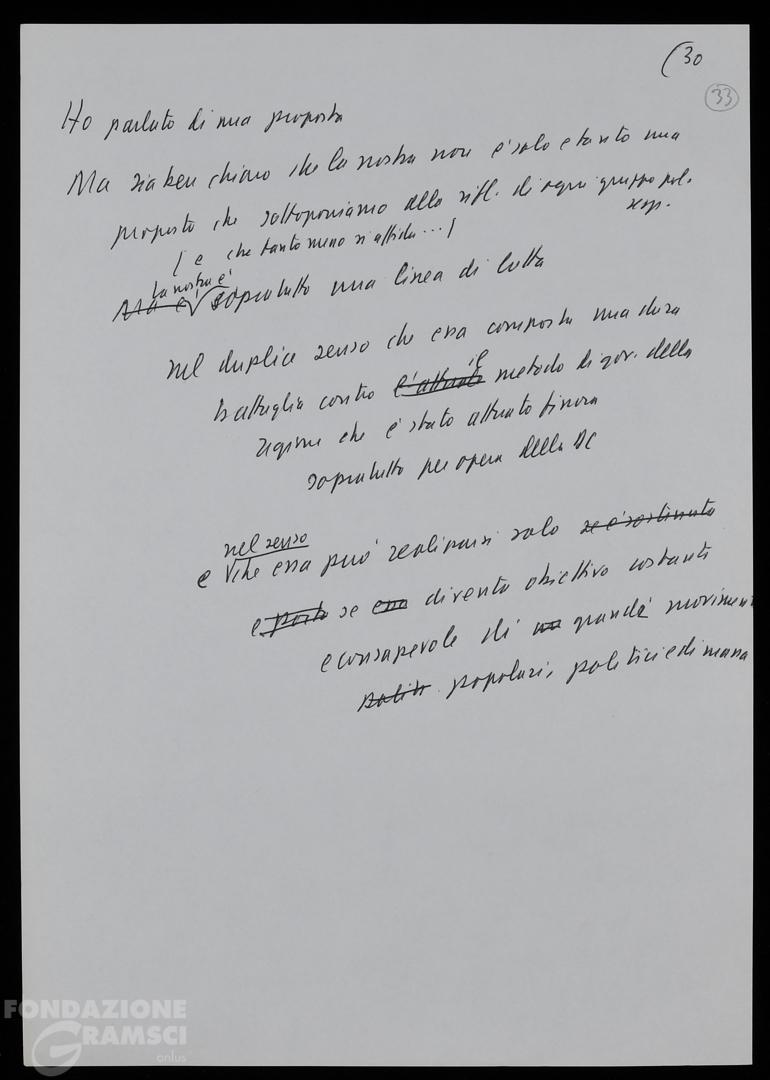 (30
33
Ho parlato di una proposta
Ma sia ben chiaro che la nostra non è solo e tanto una
proposta che sottoponiamo alla rifl. di ogni gruppo pol.
resp.
[e che tanto meno si affida...]
La nostra è
Ma è sopratutto una linea di lotta
nel duplice senso che essa comporta una dura
battaglia contro l'attuale il metodo di gov. della
regione che è stato attuato finora
sopratutto per opera della DC
nel senso
e che essa può realizzarsi solo se è sostenuta
e porta se essa diventa obiettivo costante
e consapevole di un grandi movimenti
popolari, politici e di massa
FONDAZIONE
GRAMSCI
onlus